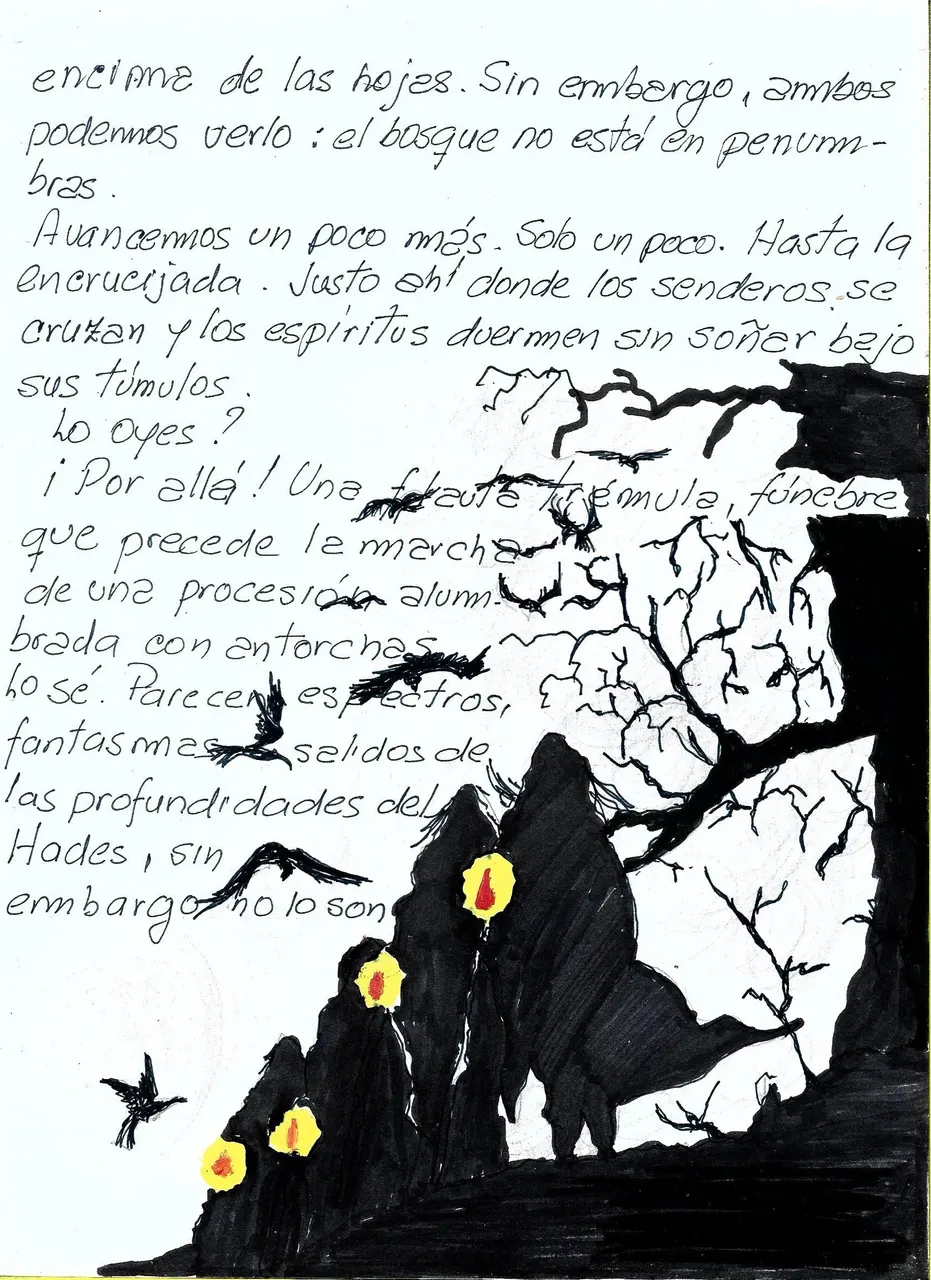 encima de las hojas. Sin embargo, ambos
podemos verlo: el bosque no está en penum-
bras.
Avancemos un poco más. Solo un poco. Hasta la
encrucijada. Justo ahí donde los senderos se
cruzan y los espíritus duermen sin soñar bajo
sus túmulos.
Lo oyes?
¡Por allá! Una flauta trémula, fúnebre
que precede la marcha
de una procesión alum-
brada con antorchas
Lo sé. Parecen espectros,
fantasmas salidos de
las profundidades del
Hades, sin
embargo no lo son